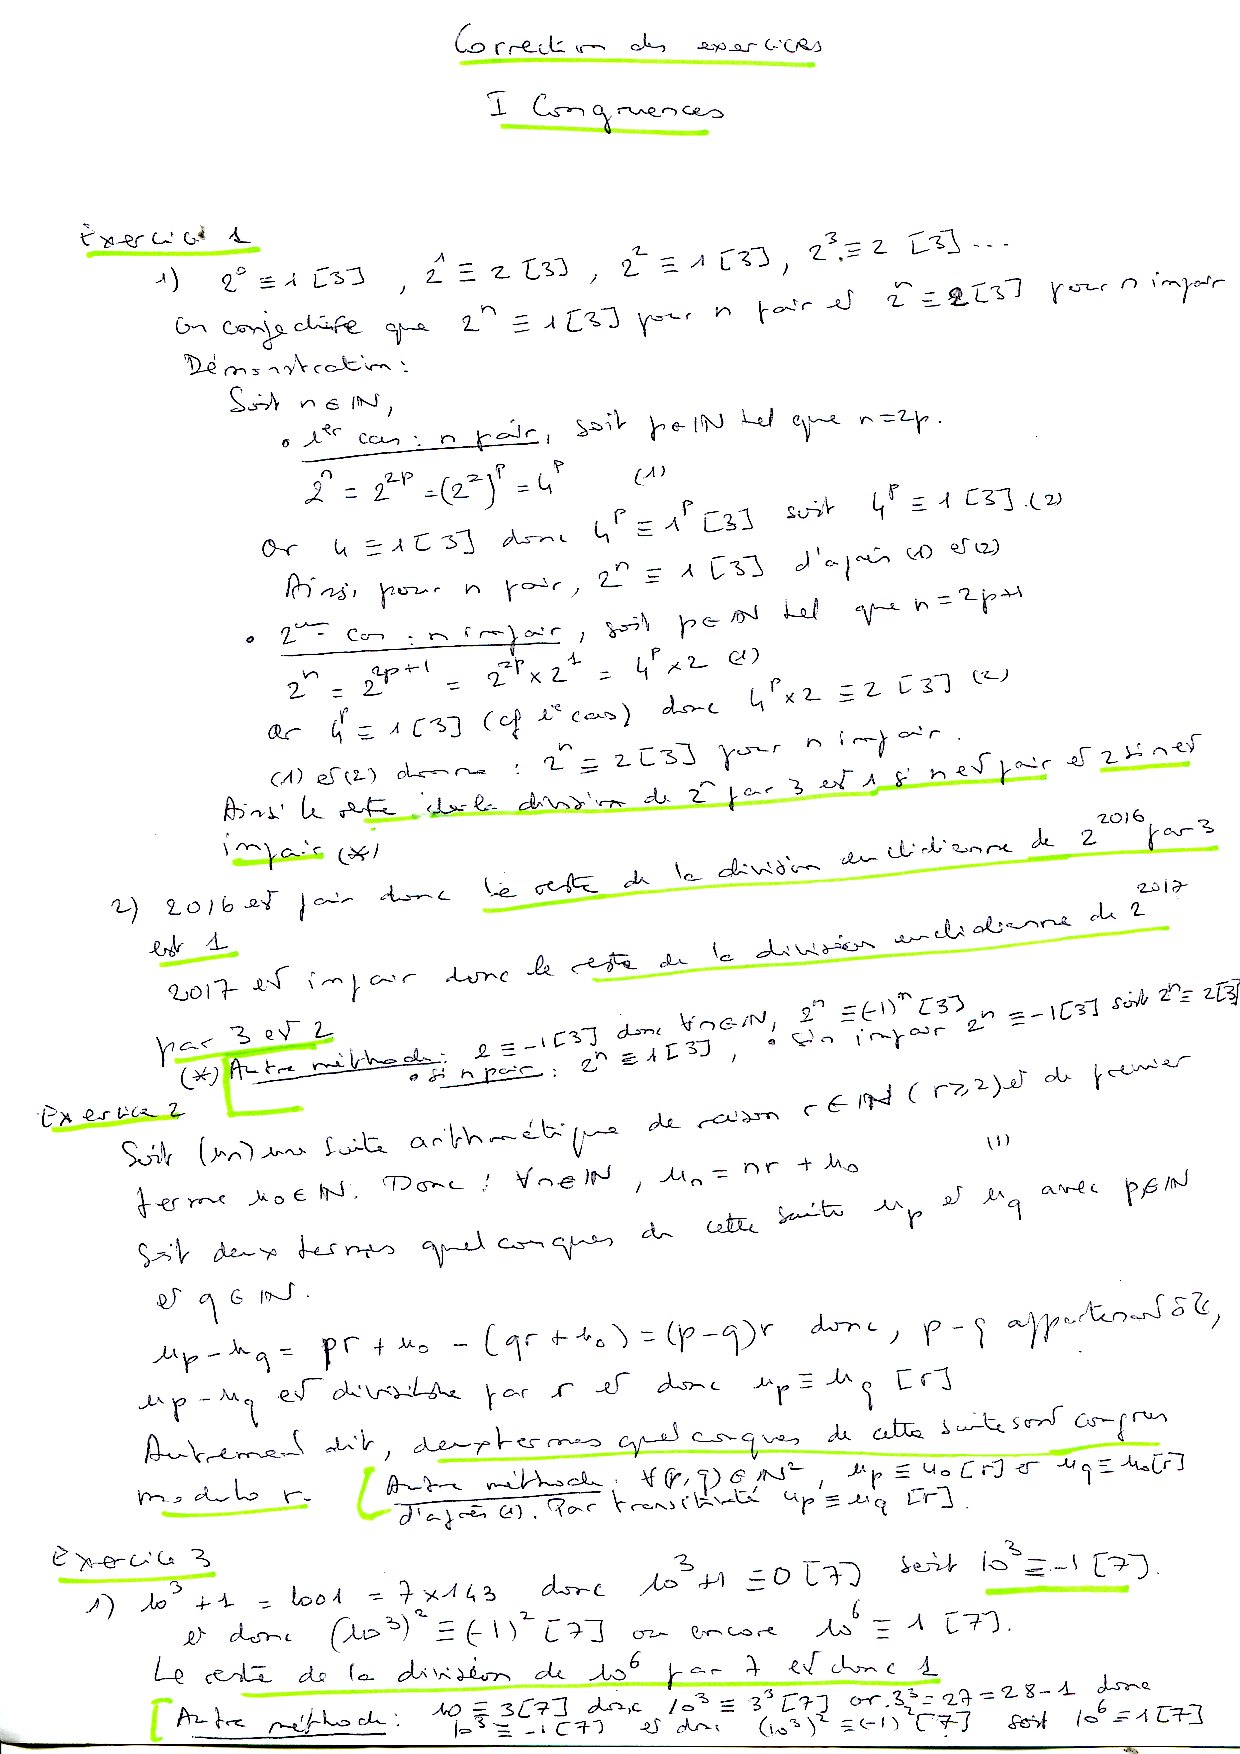 Correction des exercices
I Congruences
Exercice 1
1) 2⁰ ≡ 1 [3] , 2¹ ≡ 2 [3] , 2² ≡ 1 [3] , 2³ ≡ 2 [3] ...
On conjecture que 2ⁿ ≡ 1 [3] pour n pair et 2ⁿ ≡ 2 [3] pour n impair
Démonstration :
Soit n ∈ ℕ,
• 1er cas : n pair, soit p ∈ ℕ tel que n = 2p.
2ⁿ = 2²ᵖ = (2²)ᵖ = 4ᵖ (1)
Or 4 ≡ 1 [3] donc 4ᵖ ≡ 1ᵖ [3] soit 4ᵖ ≡ 1 [3]. (2)
Ainsi pour n pair, 2ⁿ ≡ 1 [3] d'après (1) et (2)
• 2ème cas : n impair, soit p ∈ ℕ tel que n = 2p+1
2ⁿ = 2²ᵖ⁺¹ = 2²ᵖ × 2¹ = 4ᵖ × 2 (1)
Or 4ᵖ ≡ 1 [3] (cf 1er cas) donc 4ᵖ × 2 ≡ 2 [3] (2)
(1) et (2) donne : 2ⁿ ≡ 2 [3] pour n impair.
Ainsi le reste de la division de 2ⁿ par 3 est 1 si n est pair et 2 si n est
impair (*)
2) 2016 est pair donc le reste de la division euclidienne de 2²⁰¹⁶ par 3
est 1
2017 est impair donc le reste de la division euclidienne de 2²⁰¹⁷
par 3 est 2
(*) Autre méthode : 2 ≡ -1 [3] donc ∀n ∈ ℕ, 2ⁿ ≡ (-1)ⁿ [3]
• si n pair : 2ⁿ ≡ 1 [3], • si n impair 2ⁿ ≡ -1 [3] soit 2ⁿ ≡ 2 [3]
Exercice 2
Soit (uₙ) une suite arithmétique de raison r ∈ ℕ (r ⩾ 2) et de premier
terme u₀ ∈ ℕ. Donc : ∀n ∈ ℕ, uₙ = nr + u₀ (1)
Soit deux termes quelconques de cette suite u_p et u_q avec p ∈ ℕ
et q ∈ ℕ.
u_p - u_q = pr + u₀ - (qr + u₀) = (p - q)r donc, p - q appartenant à ℤ,
u_p - u_q est divisible par r et donc u_p ≡ u_q [r]
Autrement dit, deux termes quelconques de cette suite sont congrus
modulo r.
Autre méthode : ∀(p, q) ∈ ℕ², u_p ≡ u₀ [r] et u_q ≡ u₀ [r]
d'après (1). Par transitivité u_p ≡ u_q [r].
Exercice 3
1) 10³ + 1 = 1001 = 7 × 143 donc 10³ + 1 ≡ 0 [7] soit 10³ ≡ -1 [7].
et donc (10³)² ≡ (-1)² [7] ou encore 10⁶ ≡ 1 [7].
Le reste de la division de 10⁶ par 7 est donc 1
Autre méthode : 10 ≡ 3 [7] donc 10³ ≡ 3³ [7] or 3³ = 27 = 28 - 1 donc
10³ ≡ -1 [7] et donc (10³)² ≡ (-1)² [7] soit 10⁶ ≡ 1 [7]